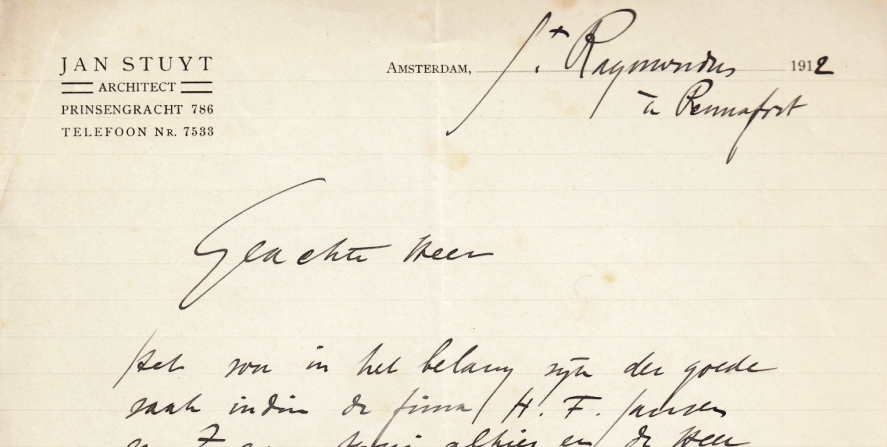 JAN STUYT
ARCHITECT
PRINSENGRACHT 786
TELEFOON NR. 7533
AMSTERDAM, St. Raymondus 1912
à Pennafort
Geachte Heer
Het zou in het belang zijn der goede
zaak indien de firma H. F. Jansen
en Z alhier en de Heer